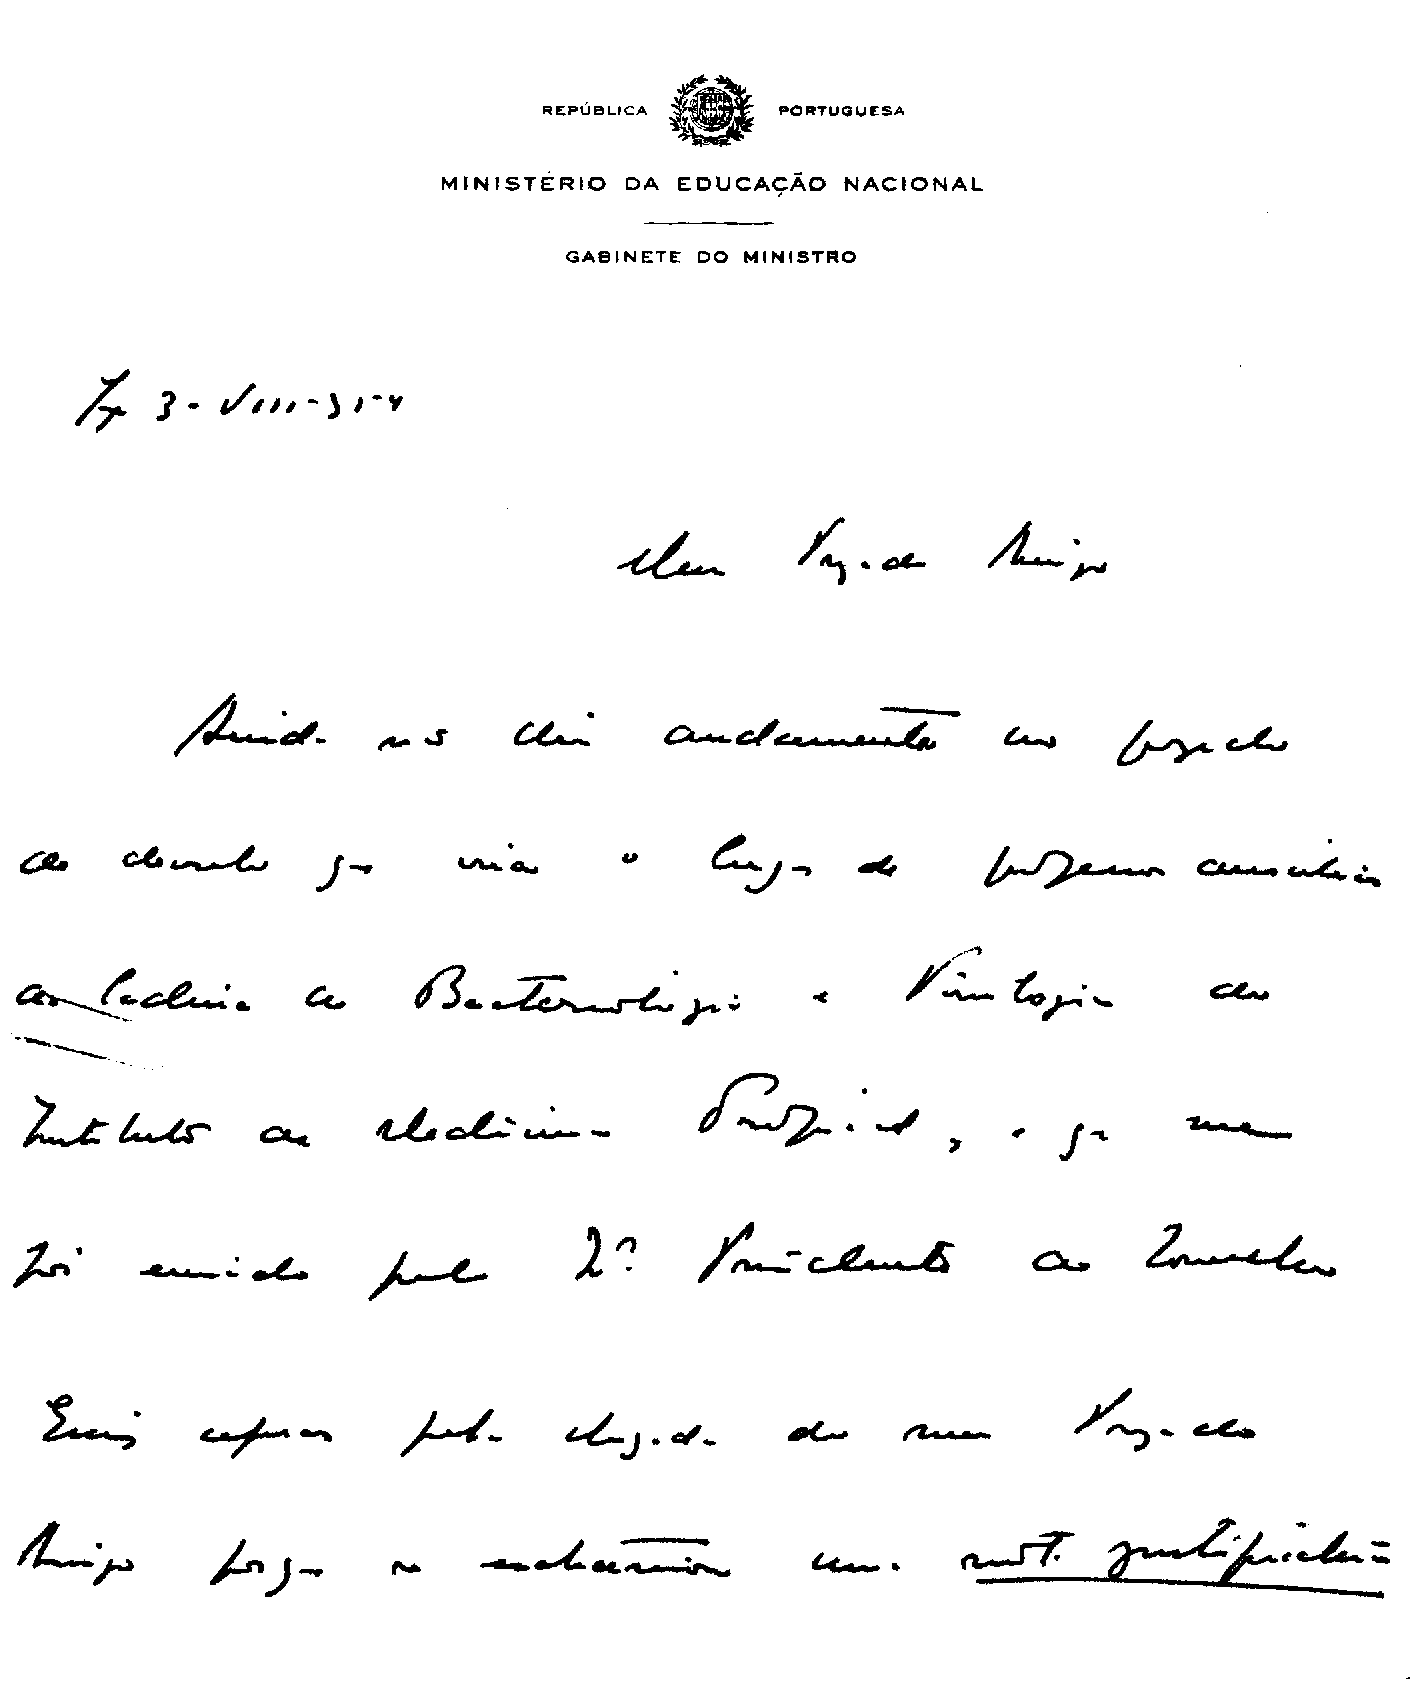 REPÚBLICA PORTUGUESA
MINISTÉRIO DA EDUCAÇÃO NACIONAL
GABINETE DO MINISTRO
3-VIII-
Meu Prezado Amigo
Ainda não dei andamento ao projecto
de decreto que cria o lugar de professor auxiliar
da Cadeira de Bacteriologia e Virologia do
Instituto de Medicina Tropical, e que me
foi enviado pelo Presidente do Conselho
esperar pela chegada do meu Prezado
Amigo porque necessário uma nota justificativa